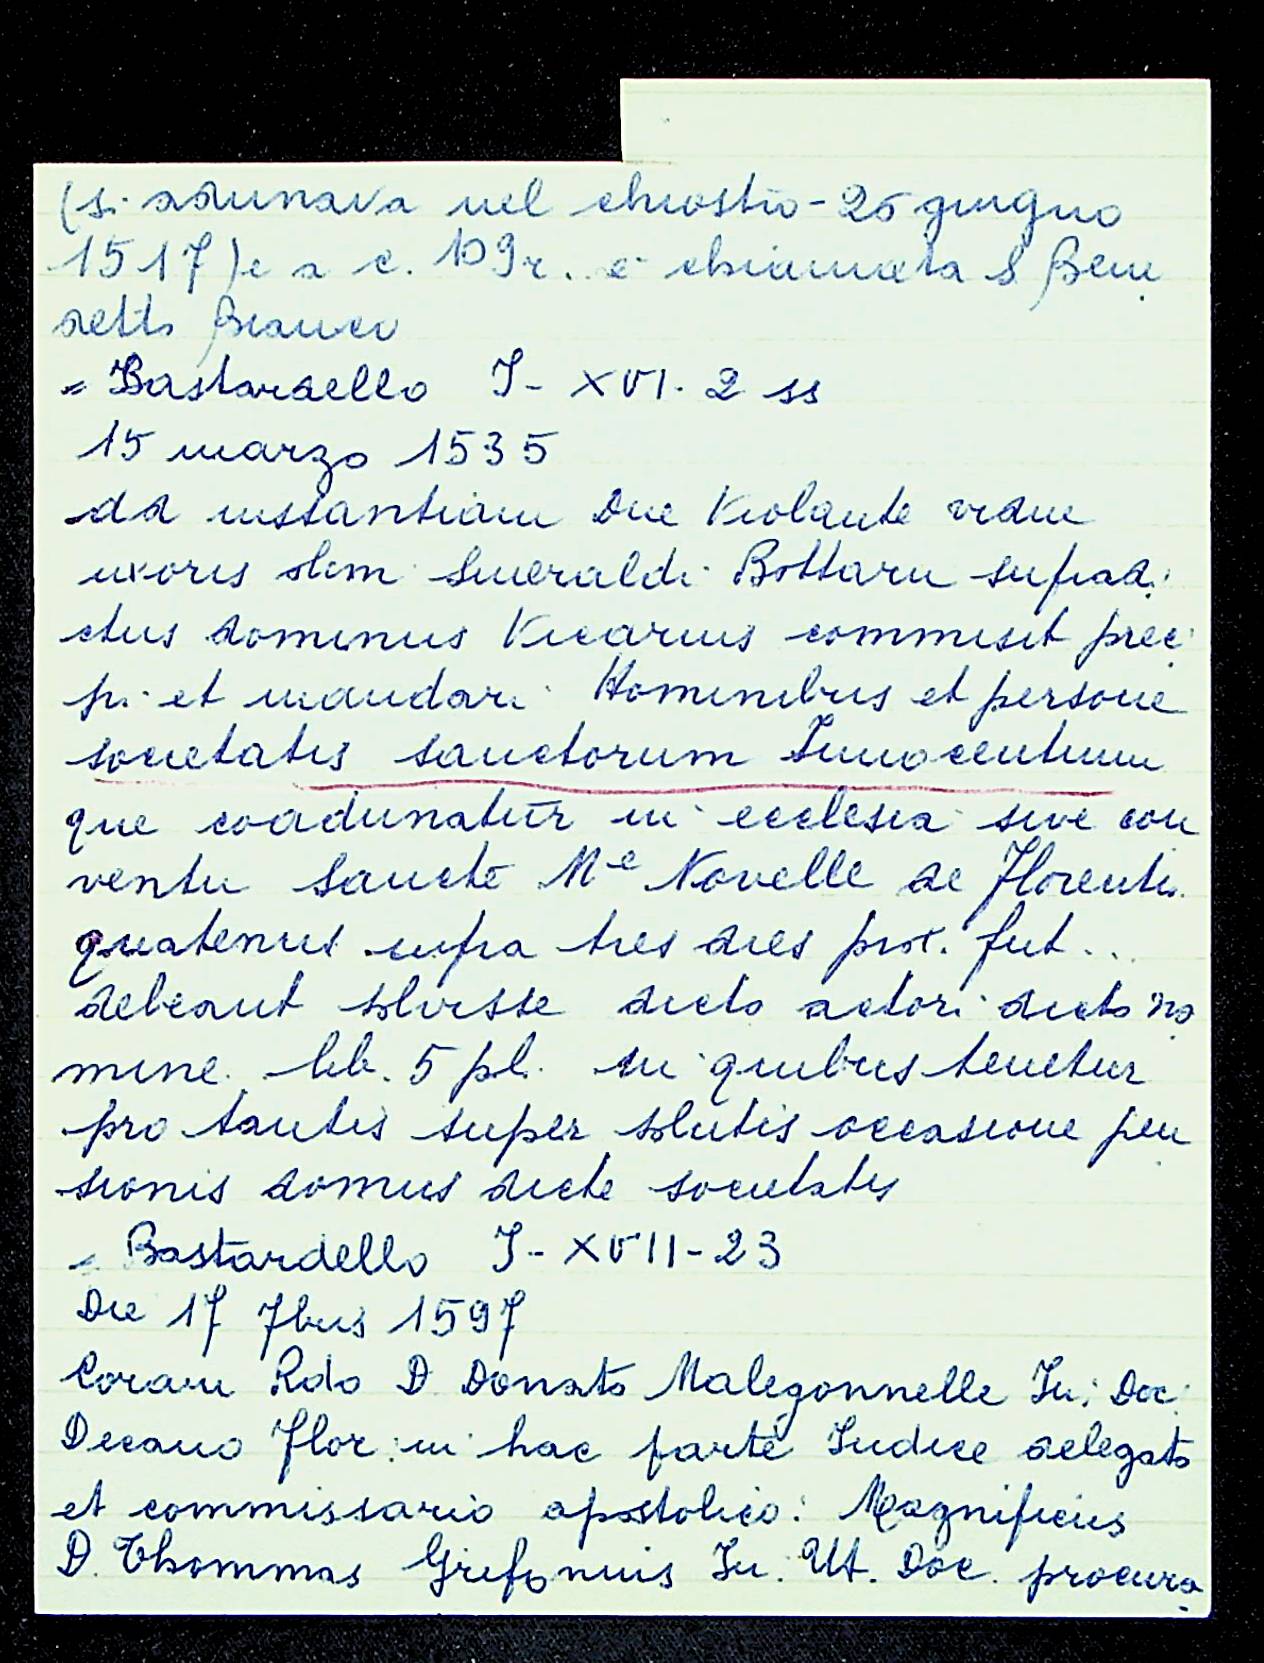 (si adunava nel chiostro - 25 giugno
1517) e a c. 109r. è chiamata S Bene
detto Bianco
= Bastardello I - XVI. 2 ss
15 marzo 1535
Ad instantiam Dne Violante vidue
uxoris olim Smeraldi Bottari supradi
ctus dominus Vicarius commisit preci
pi et mandari Hominibus et persone
societatis sanctorum Innocentium
que coadunatur in ecclesia sive con
ventu Sancte Me Novelle de Florentia
quatenus infra tres dies prox. fut...
debeant solvisse dicto actori dicto no
mine lib. 5 pl. in quibus tenetur
pro tantis super solutis occasione pen
sionis domus dicte societatis
= Bastardello I - XVII - 23
Die 17 7bris 1597
Coram Rdo D Donato Malegonnelle Iu. Doc.
Decano Flor. in hac parte Iudice delegato
et commissario apostolico: Magnificus
D. Thommas Grifonius Iu. Ut. Doc. procura